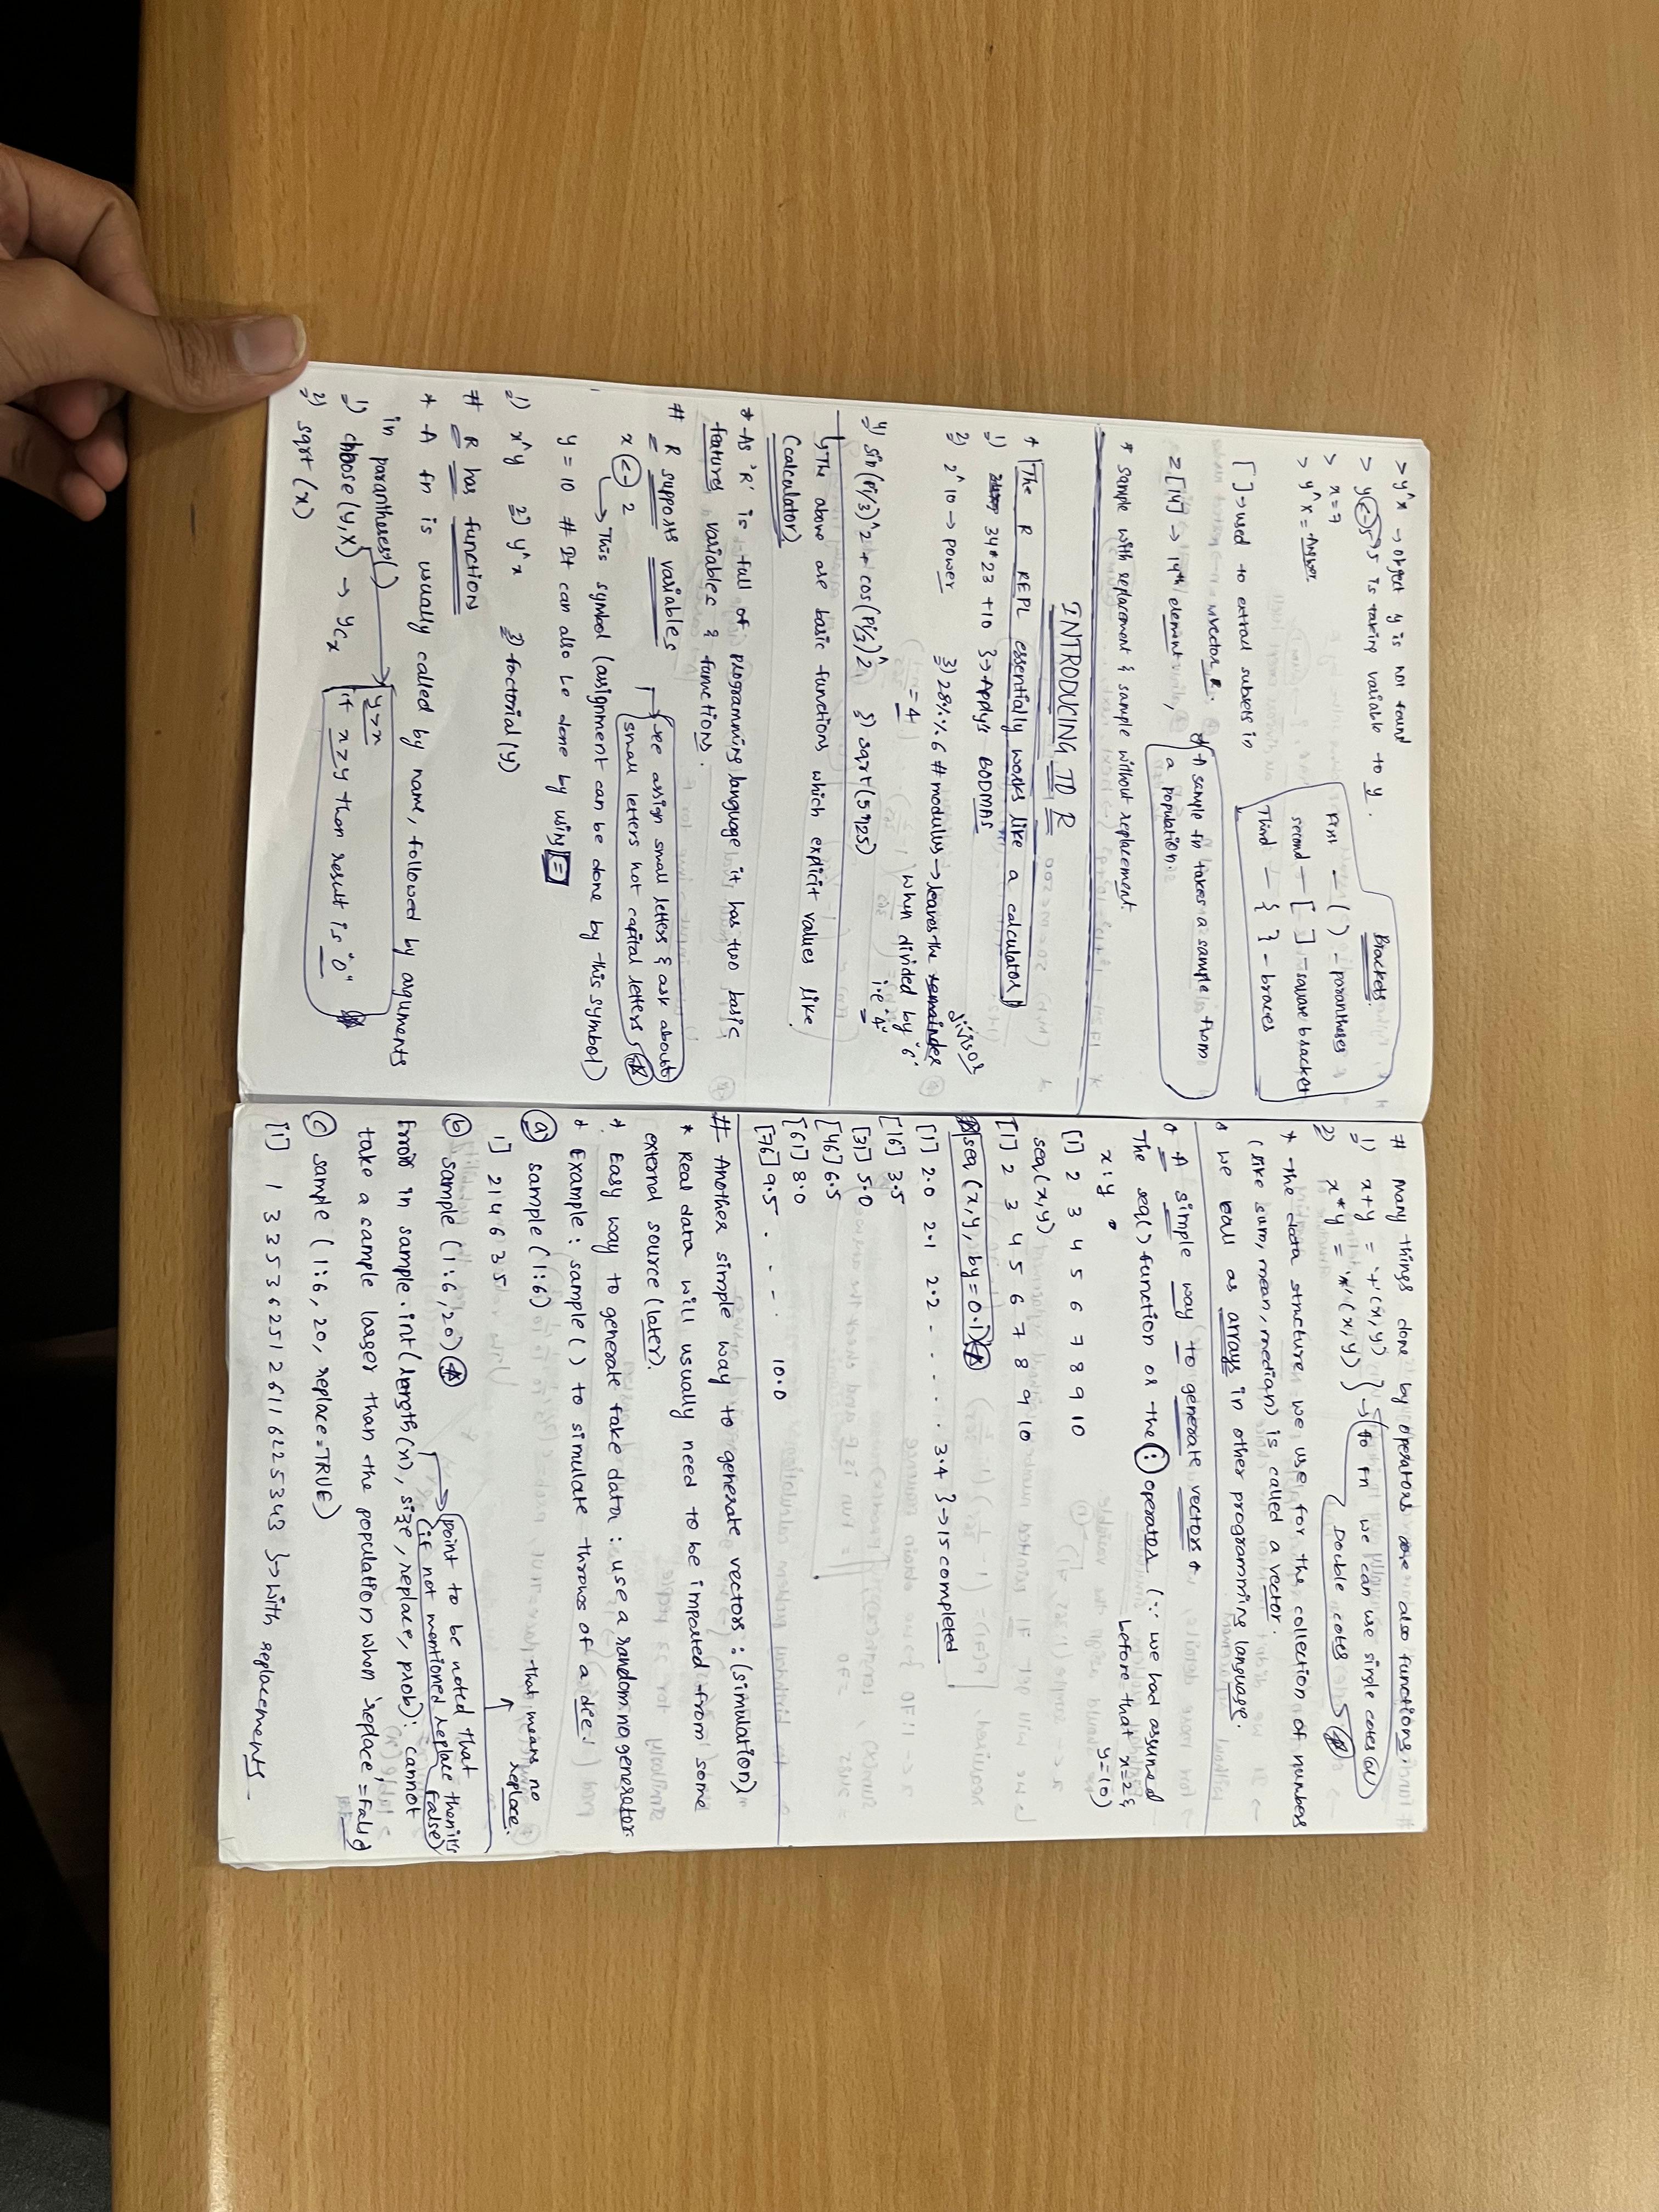 > y^x → object y is not found
> y <- 5 → 5 is taking variable to y.
> x = 7
> y^x = Answer
Brackets
First — ( ) — parantheses
second — [ ] — square bracket
Third — { } — braces
[ ] → used to extract subsets in
vector R.
z[14] → 14th element. ,
* A sample fn takes a sample from
a population.
* sample with replacement & sample without replacement.
INTRODUCING TO R
* The R REPL essentially works like a calculator
1) 34*23 +10 }→ Apply's BODMAS
2) 2^10 → power
3) 28%%6 # modulus → leaves the remainder divisor
= 4 when divided by "6"
i.e "4"
4) sin(pi/3)^2 + cos(pi/3)^2
5) sqrt(5^25)
↳ The above are basic functions which explicit values like
(calculator)
* As 'R' is full of programming language it has two basic
features variables & functions.
# R supports variables
see assign small letters & ask about
small letters not capital letters
x <- 2
↳ This symbol (assignment can be done by this symbol)
y = 10 # It can also be done by using =
1) x^y 2) y^x 3) factorial(y)
# R has functions
* A fn is usually called by name, followed by arguments
in parantheses ( )
1) choose(y,x) → yCx
y>x
if x>y then result is "0"
2) sqrt (x)
# Many things done by operators are also functions.
1) x+y = '+'(x,y)
2) x*y = '*'(x,y)
to fn we can use single cotes (or)
Double cotes
* The data structure we use for the collection of numbers
(like sum, mean, median) is called a vector.
* we call as arrays in other programming language.
* A simple way to generate vectors *
The seq() function or the : operator (∵ we had assumed
before that x=2 &
y=10)
x:y
[1] 2 3 4 5 6 7 8 9 10
seq(x,y)
[1] 2 3 4 5 6 7 8 9 10
seq (x,y, by=0.1)
[1] 2.0 2.1 2.2 - - - - - - 3.4 }→ 15 completed
[16] 3.5
[31] 5.0
[46] 6.5
[61] 8.0
[76] 9.5 . - - . 10.0
# Another simple way to generate vectors : (simulation)
* Real data will usually need to be imported from some
external source (later).
* Easy way to generate fake data : use a random no generator.
* Example : sample ( ) to simulate throws of a dee!
(a) sample (1:6)
1] 2 1 4 6 3 5
that means no
replace.
(b) sample (1:6,20)
point to be noted that
(if not mentioned replace then it's
False)
Error in sample.int(length(x), size, replace, prob): cannot
take a sample larger than the population when 'replace'=False
(c) sample (1:6, 20, replace=TRUE)
[1] 1 3 3 5 3 6 2 5 1 2 6 1 1 6 2 2 5 3 4 3 }→ with replacements